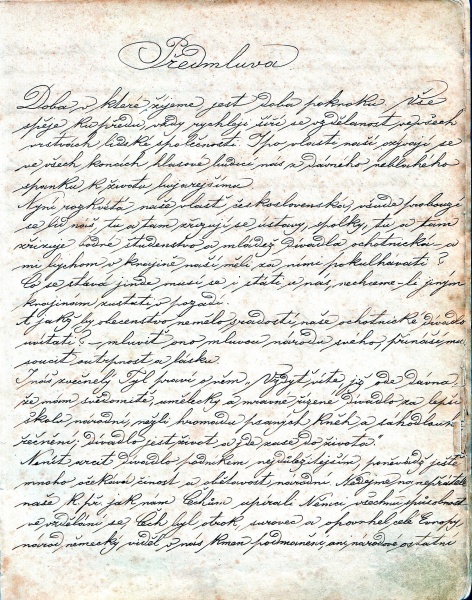 Předmluva
Doba v které žijeme jest doba pokroku. Vše
spěje ku předu, vždy rychleji šíří se vzdělanost ve všech
vrstvách lidské společnosti. I po vlasti naší ozývají se
ve všech koncích hlasové budící nás z dávného neblahého
spánku k životu bujarejšímu
Nyní rozkvétá naše vlasť československá, všude probouzí
se lid náš, tu a tam zřizují se ústavy, spolky, tu a tam
zřizuje bodré studenstvo a mládež divadla ochotnická a
mi bychom v krajině naší měli za nimi pokulhávati?
Co se stává jinde musí se i státi u nás, nechceme-li jiným
krajinám zustati v pozadu.
A jaký by obecenstvo nemělo s radostí, naše ochotnické divadlo
uvítati? – mluvit ono mluvou národu svého, přináší mu
soucit outrpnost a lásku
I náš zvěčnělý Tyl praví o něm „Vždyť víte již ode dávna
že nám svědomitě, umělecky a mravně řízené divadlo za lepší
školu národní, nežli hromadu psaných kněh a sáhodlouhé
řečnění, divadlo jest život a jde zase do života."
Neníť arcit divadlo podnikem nejdůležitejším, poněvádž ještě
mnoho očekává žinost a obětavost národní.
naše k př. jak nám Čechům upírali Němci všechnu způsobnost
ve vzdělání se, Čech byl otrok, surovec a opovrhel celé Evropy,
národ německý viděl v nás kmen podmaněný ani národové ostatní